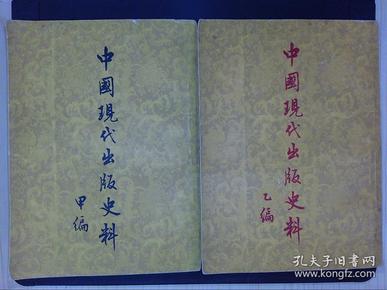 中國現代出版史料
甲編
中國現代出版史料
乙編
孔夫子旧书网